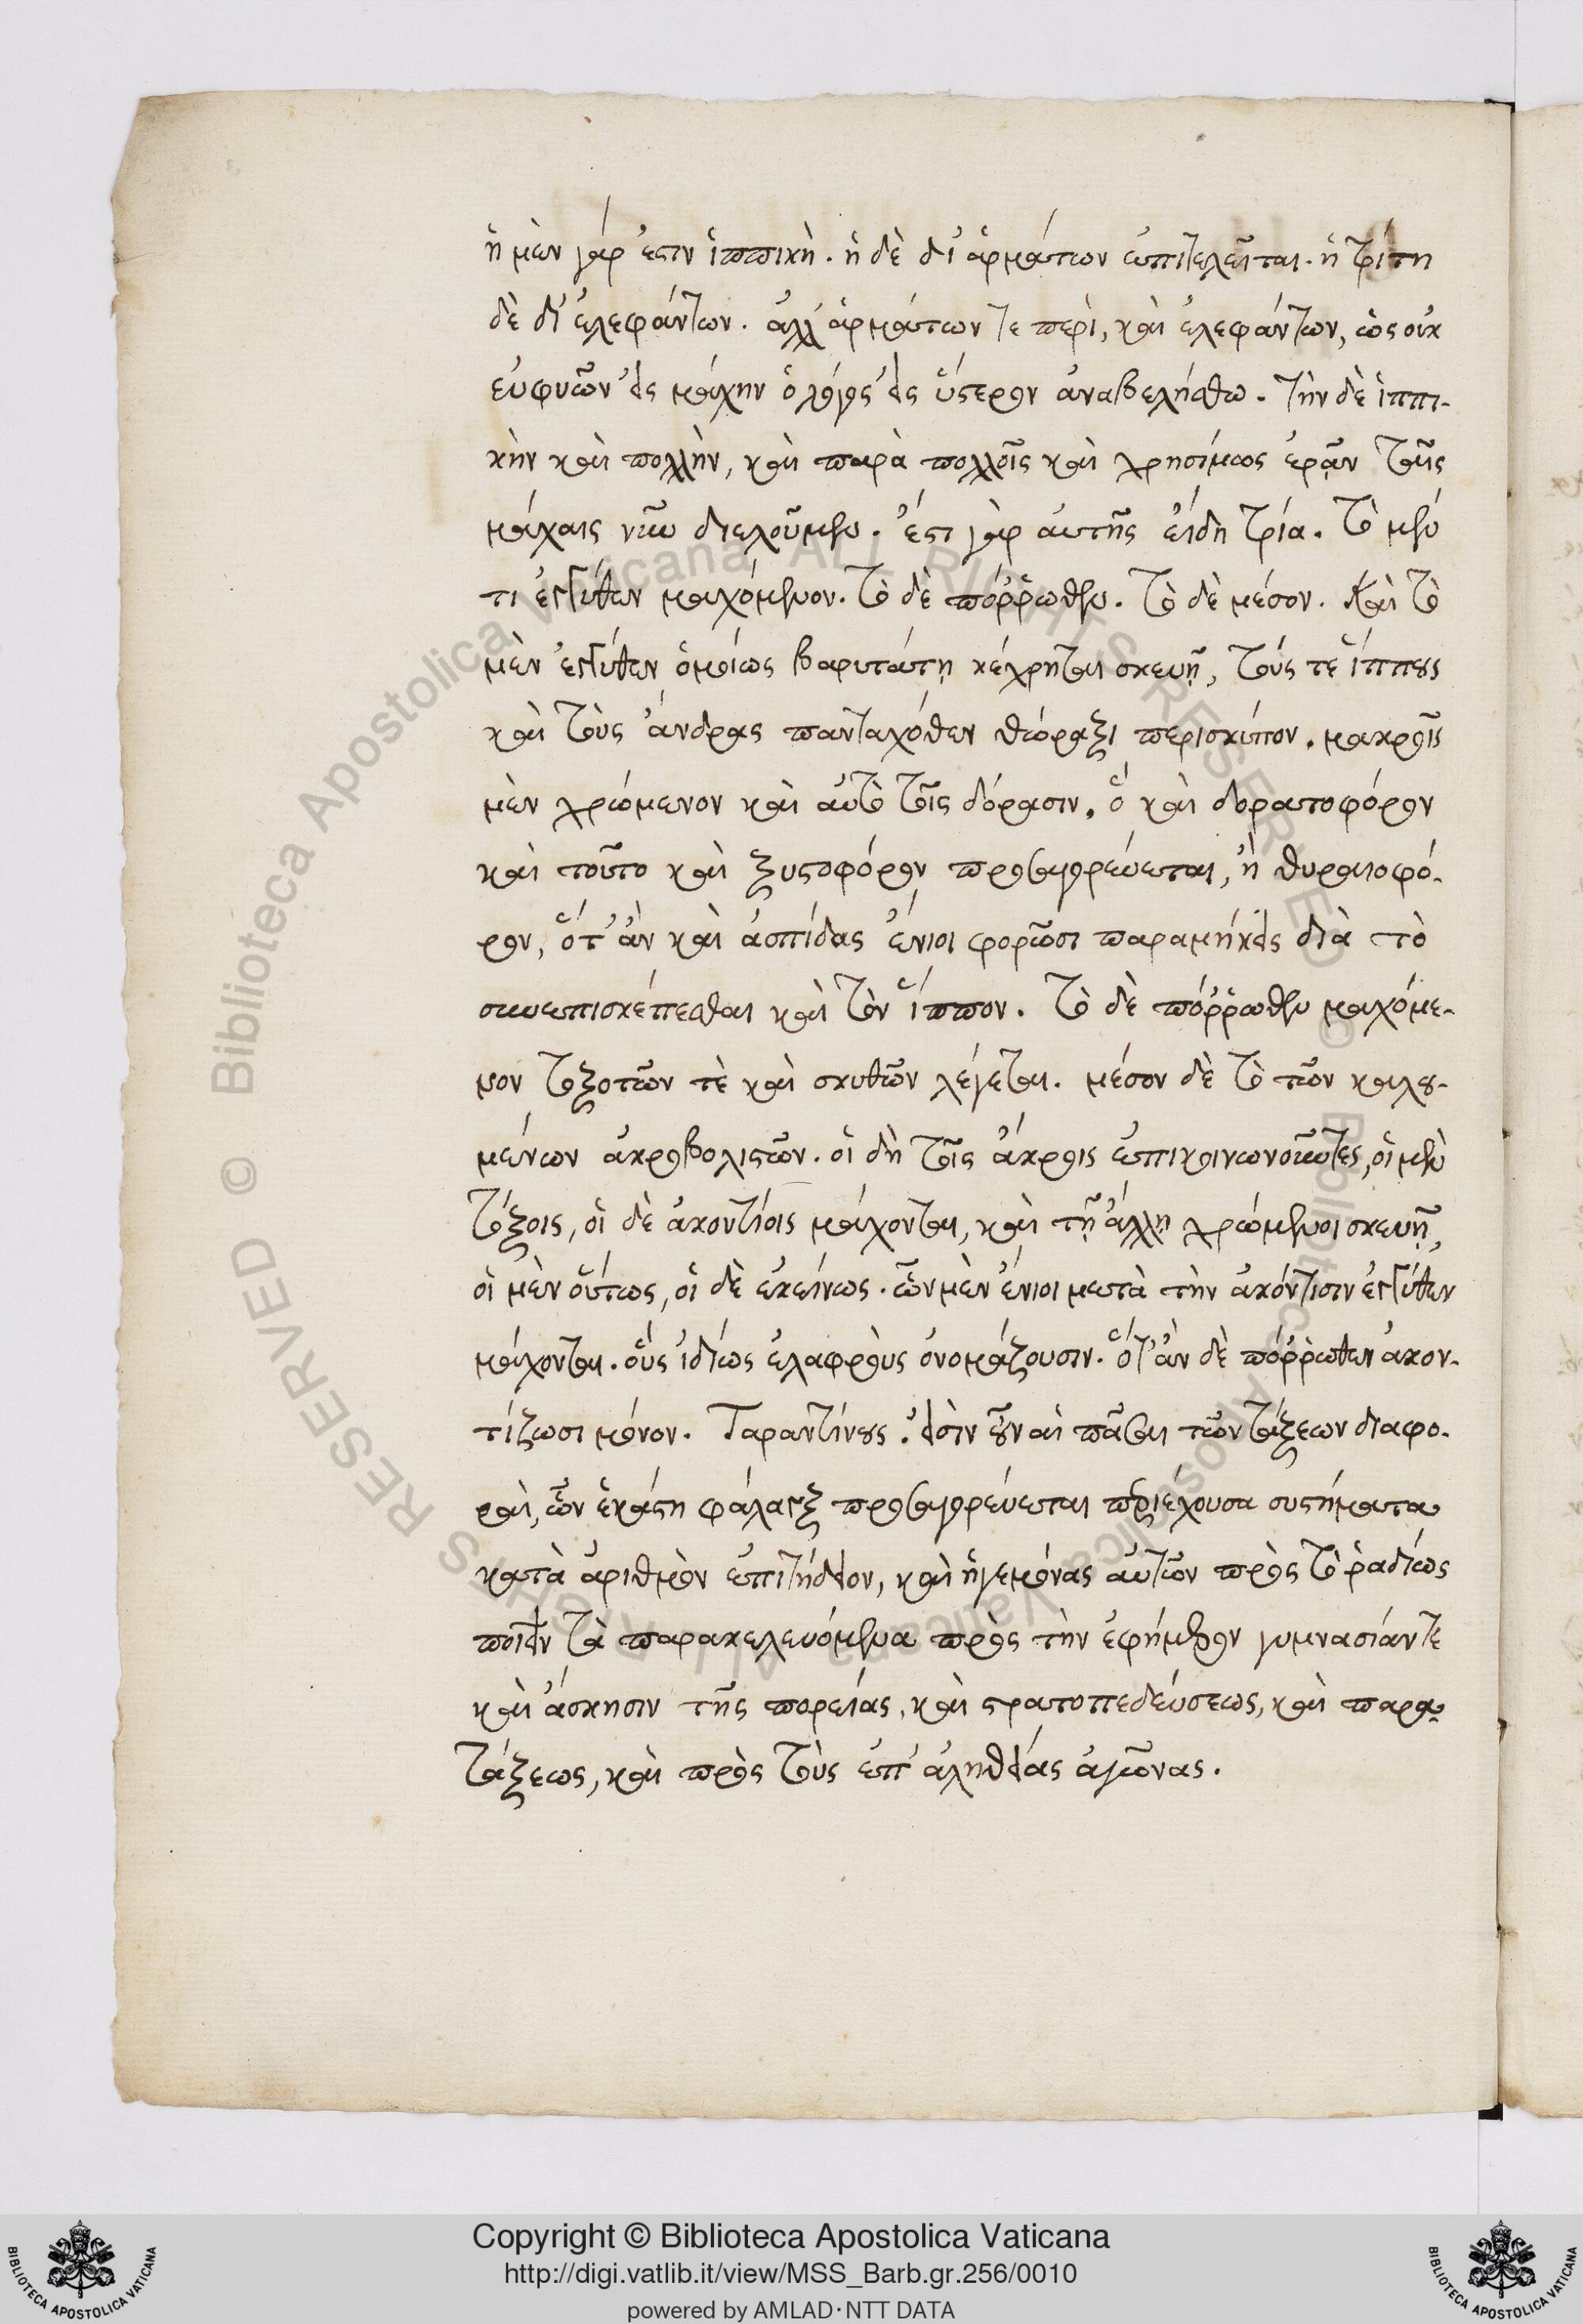 ἡ μὲν γάρ ἐστιν ἱππικὴ. ἡ δὲ δι' ἁρμάτων ἐπιτελεῖται. ἡ τρίτη
δὲ δι' ἐλεφάντων. ἀλλ' ἁρμάτων τε περὶ, καὶ ἐλεφάντων, ὡς οὐκ
εὐφυῶν εἰς μάχην ὁ λόγος εἰς ὕστερον ἀναβελήσθω. τὴν δὲ ἱππι-
κὴν καὶ πολλὴν, καὶ παρὰ πολλοῖς καὶ χρησίμως ἐρᾷν ταῖς
μάχαις νῦν διελοῦμεν. ἔστι γὰρ αὐτῆς εἴδη τρία. τὸ μέν
τι ἐγγύθεν μαχόμενον. τὸ δὲ πόῤῥωθεν. τὸ δὲ μέσον. καὶ τὸ
μὲν ἐγγύθεν ὁμοίως βαρυτάτῃ κέχρηται σκευῇ, τούς τε ἵππους
καὶ τοὺς ἄνδρας πανταχόθεν θώραξι περισκύπον. μακροῖς
μὲν χρώμενον καὶ αὐτὸ τοῖς δόρασιν. ὅ καὶ δορατοφόρον
καὶ τοῦτο καὶ ξυστοφόρον προσαγορεύεται, ἢ θυραιοφό-
ρον, ὅτ' ἂν καὶ ἀσπίδας ἔνιοι φορῶσι παραμήκεις διὰ τὸ
συνεπισκέπεσθαι καὶ τὸν ἵππον. τὸ δὲ πόῤῥωθεν μαχόμε-
νον τοξοτῶν τὲ καὶ σκυθῶν λέγεται. μέσον δὲ τὸ τῶν καλου-
μένων ἀκροβολιστῶν. οἱ δὴ τοῖς ἄκροις ἐπικοινωνοῦντες, οἱ μὲν
τόξοις, οἱ δὲ ἀκοντίοις μάχονται, καὶ τῇ ἄλλῃ χρώμενοι σκευῇ,
οἱ μὲν οὕτως, οἱ δὲ ἐκείνως. ὧν μὲν ἔνιοι μετὰ τὴν ἀκόντισιν ἐγγύθεν
μάχονται. οὓς ἰδίως ἐλαφροὺς ὀνομάζουσιν. ὅτ' ἂν δὲ πόῤῥωθεν ἀκον-
τίζωσι μόνον. Ταραντίνους. εἰσὶν οὖν αἱ πᾶσαι τῶν τάξεων διαφο-
ραὶ, ὧν ἑκάστη φάλαγξ προσαγορεύεται περιέχουσα συστήματα
κατὰ ἀριθμὸν ἐπιτήδειον, καὶ ἡγεμόνας αὐτῶν πρὸς τὸ ῥαδίως
ποιεῖν τὰ παρακελευόμενα πρὸς τὴν ἐφήμερον γυμνασίαν τε
καὶ ἄσκησιν τῆς πορείας, καὶ στρατοπεδεύσεως, καὶ παρα-
τάξεως, καὶ πρὸς τοὺς ἐπ' ἀληθείας ἀγῶνας.
Copyright © Biblioteca Apostolica Vaticana
http://digi.vatlib.it/view/MSS_Barb.gr.256/0010
powered by AMLAD·NTT DATA